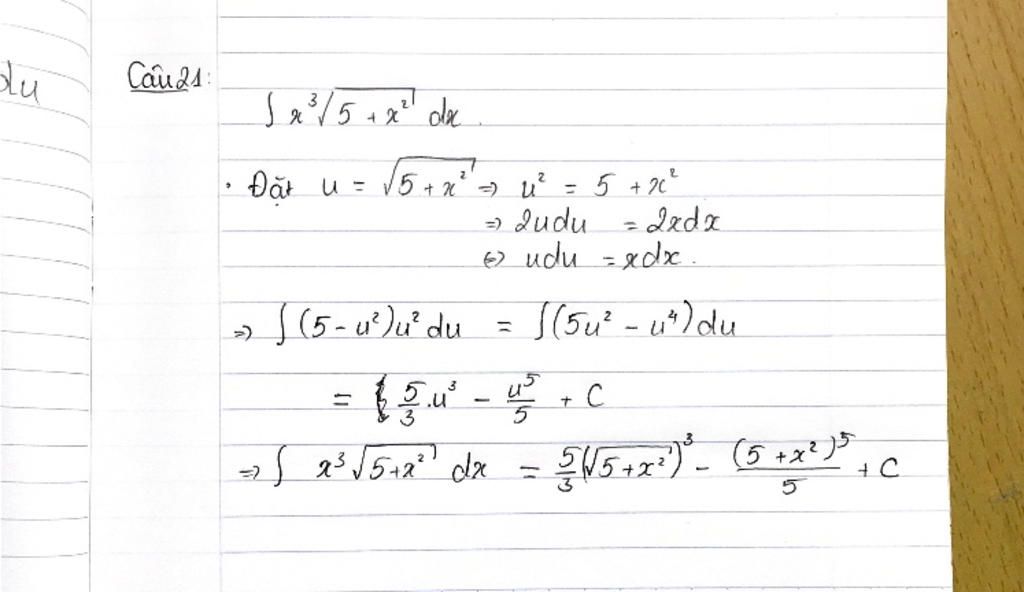 du
Câu 21:
∫ x³√(5 + x²) dx.
• Đặt u = √(5 + x²) => u² = 5 + x²
=> 2udu = 2xdx
<=> udu = xdx.
=> ∫(5 - u²)u² du = ∫(5u² - u⁴)du
= 5/3 .u³ - u⁵/5 + C
=> ∫ x³ √(5+x²) dx = 5/3 (√(5+x²))³ - (5 + x²)⁵/5 + C